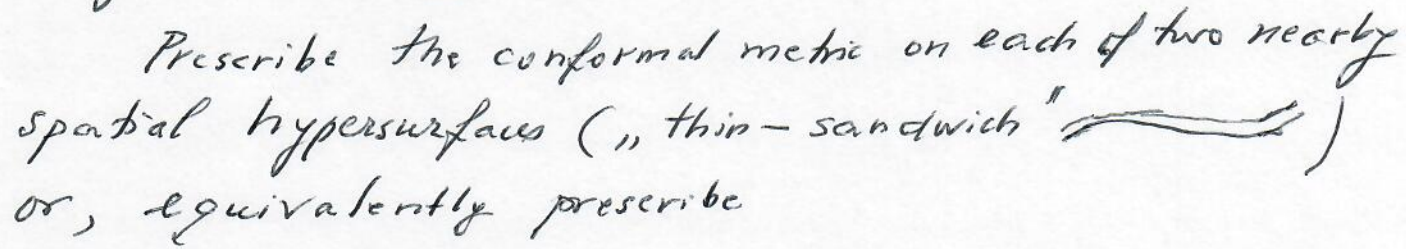 Prescribe the conformal metric on each of two nearby
spatial hypersurfaces („thin-sandwich" )
or, equivalently prescribe